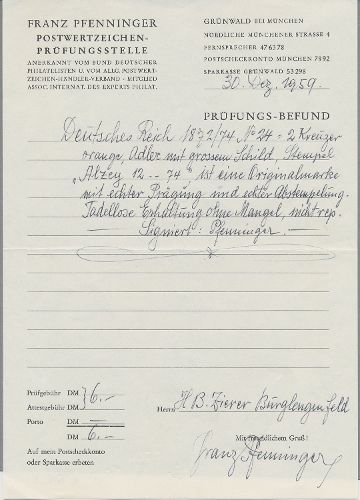 FRANZ PFENNINGER
POSTWERTZEICHEN-
PRÜFUNGSSTELLE
ANERKANNT VOM BUND DEUTSCHER
PHILATELISTEN U. VOM ALLG. POSTWERT-
ZEICHEN-HÄNDLER-VERBAND · MITGLIED
ASSOC. INTERNAT. DES EXPERTS PHILAT.
GRÜNWALD BEI MÜNCHEN
NÖRDLICHE MÜNCHENER STRASSE 4
FERNSPRECHER 476378
POSTSCHECKKONTO MÜNCHEN 7892
SPARKASSE GRÜNWALD 53298
30. Dez. 1959.
PRÜFUNGS-BEFUND
Deutsches Reich 1872/74 No 24 = 2 Kreuzer
orange, Adler mit grossem Schild, Stempel
"Alzey 12.-74" ist eine Originalmarke
mit echter Prägung und echter Abstempelung.
Tadellose Erhaltung ohne Mangel, nicht rep.
Signiert: Pfenninger.
Prüfgebühr DM
Attestgebühr DM
6.-
Porto DM
DM 6.-
Herrn H B. Burglengenfeld
Auf mein Postscheckkonto
oder Sparkasse erbeten
Mit freundlichem Gruß!
Franz Pfenninger